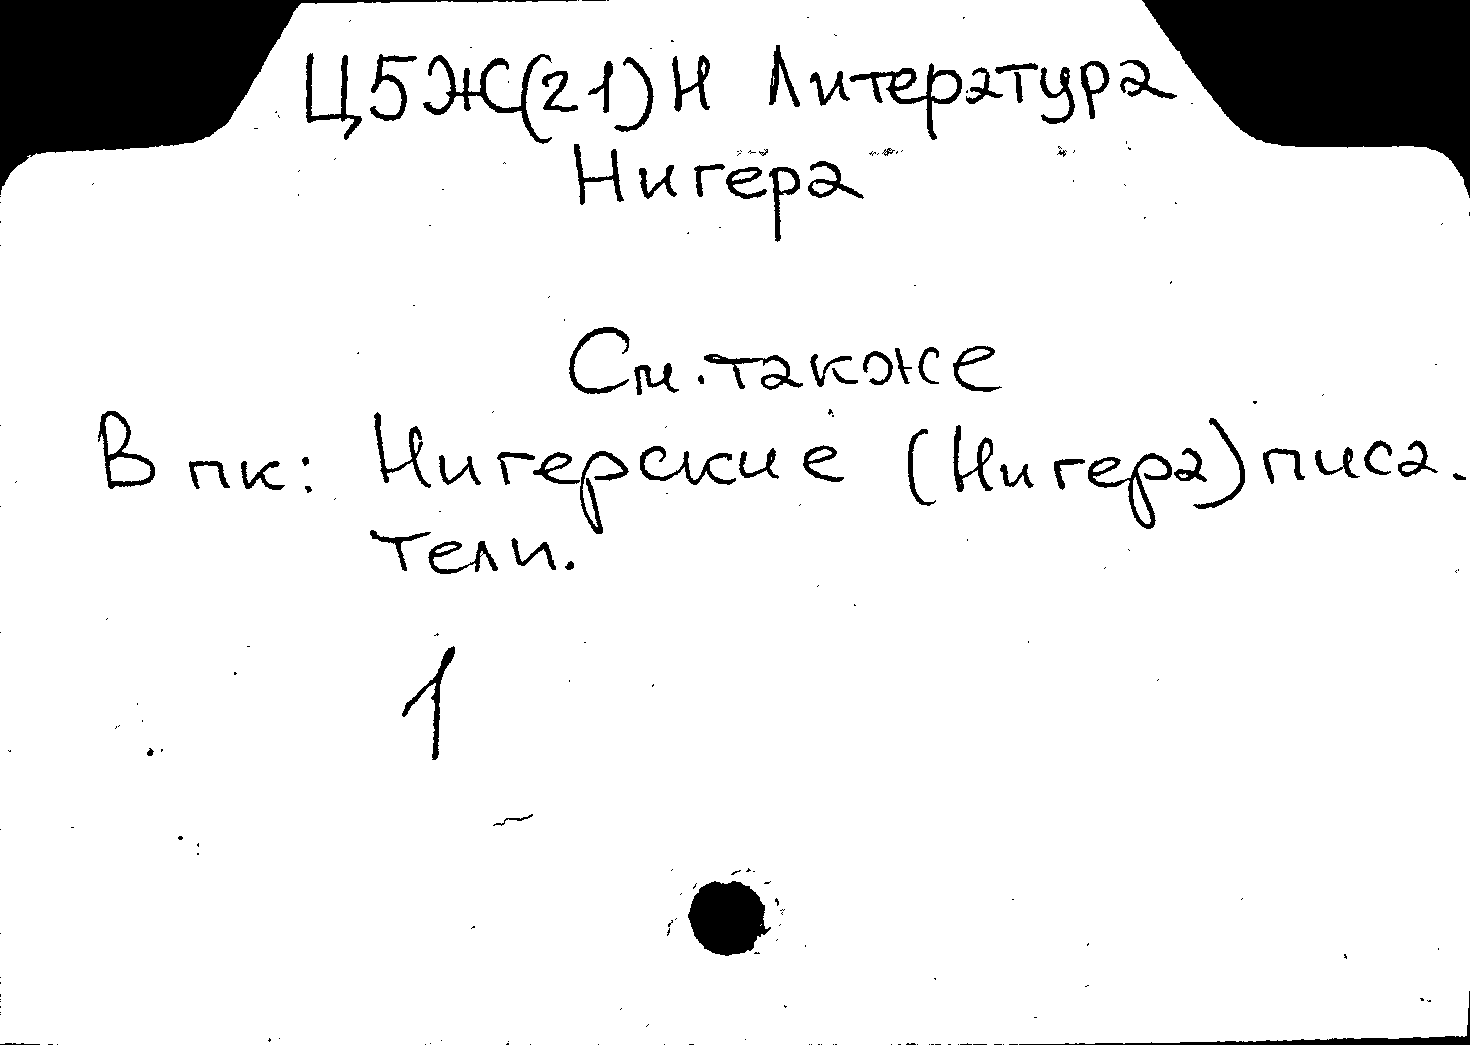 Ц5Ж(21)Н Литература
Нигера
См. также
В пк: Нигерские (Нигера) писа-
тели.
1